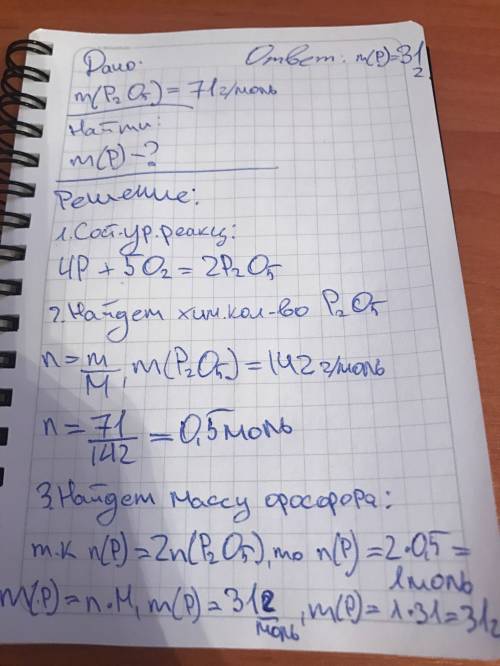 Дано:
Ответ: m(P)=31
г
m(P₂O₅) = 71 г/моль
Найти:
m(P) - ?
Решение:
1. Сост. ур. реакц:
4P + 5O₂ = 2P₂O₅
2. Найдем хим. кол-во P₂O₅
n = m/M, m(P₂O₅) = 142 г/моль
n = 71/142 = 0,5 моль
3. Найдем массу фосфора:
т.к n(P) = 2n(P₂O₅), то n(P) = 2·0,5 =
1 моль
m(P) = n·M, m(P) = 31 г/моль, m(P) = 1·31 = 31 г